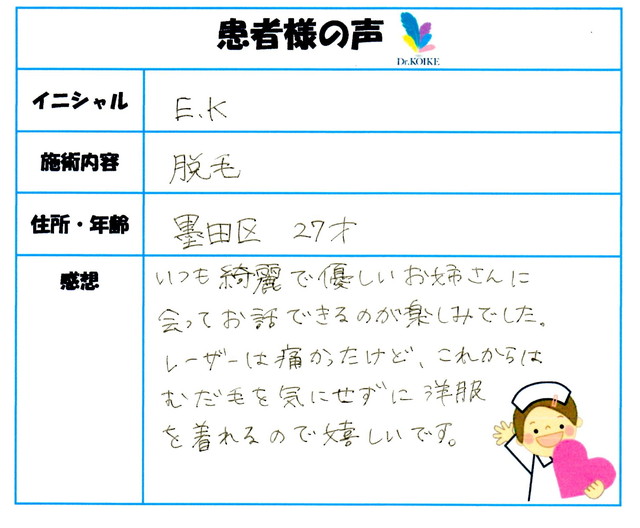 患者様の声
Dr.KOIKE
イニシャル
E.K
施術内容
脱毛
住所・年齢
墨田区 27才
感想
いつも綺麗で優しいお姉さんに
会ってお話できるのが楽しみでした。
レーザーは痛かったけど、これからは
むだ毛を気にせずに洋服
を着れるので嬉しいです。